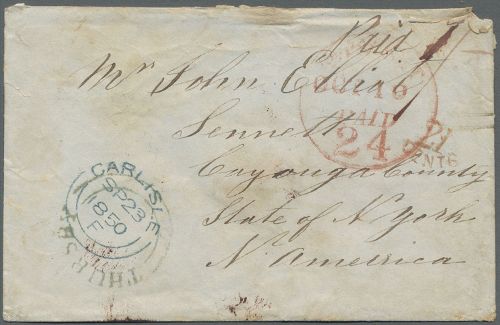 Paid 1/-
Mr John Elliot
Sennett
Cayouga County
State of N York
N. America
OC 10
PAID
24
21
CENTS
CARLISLE
SP 23
1850
F
THURSBY